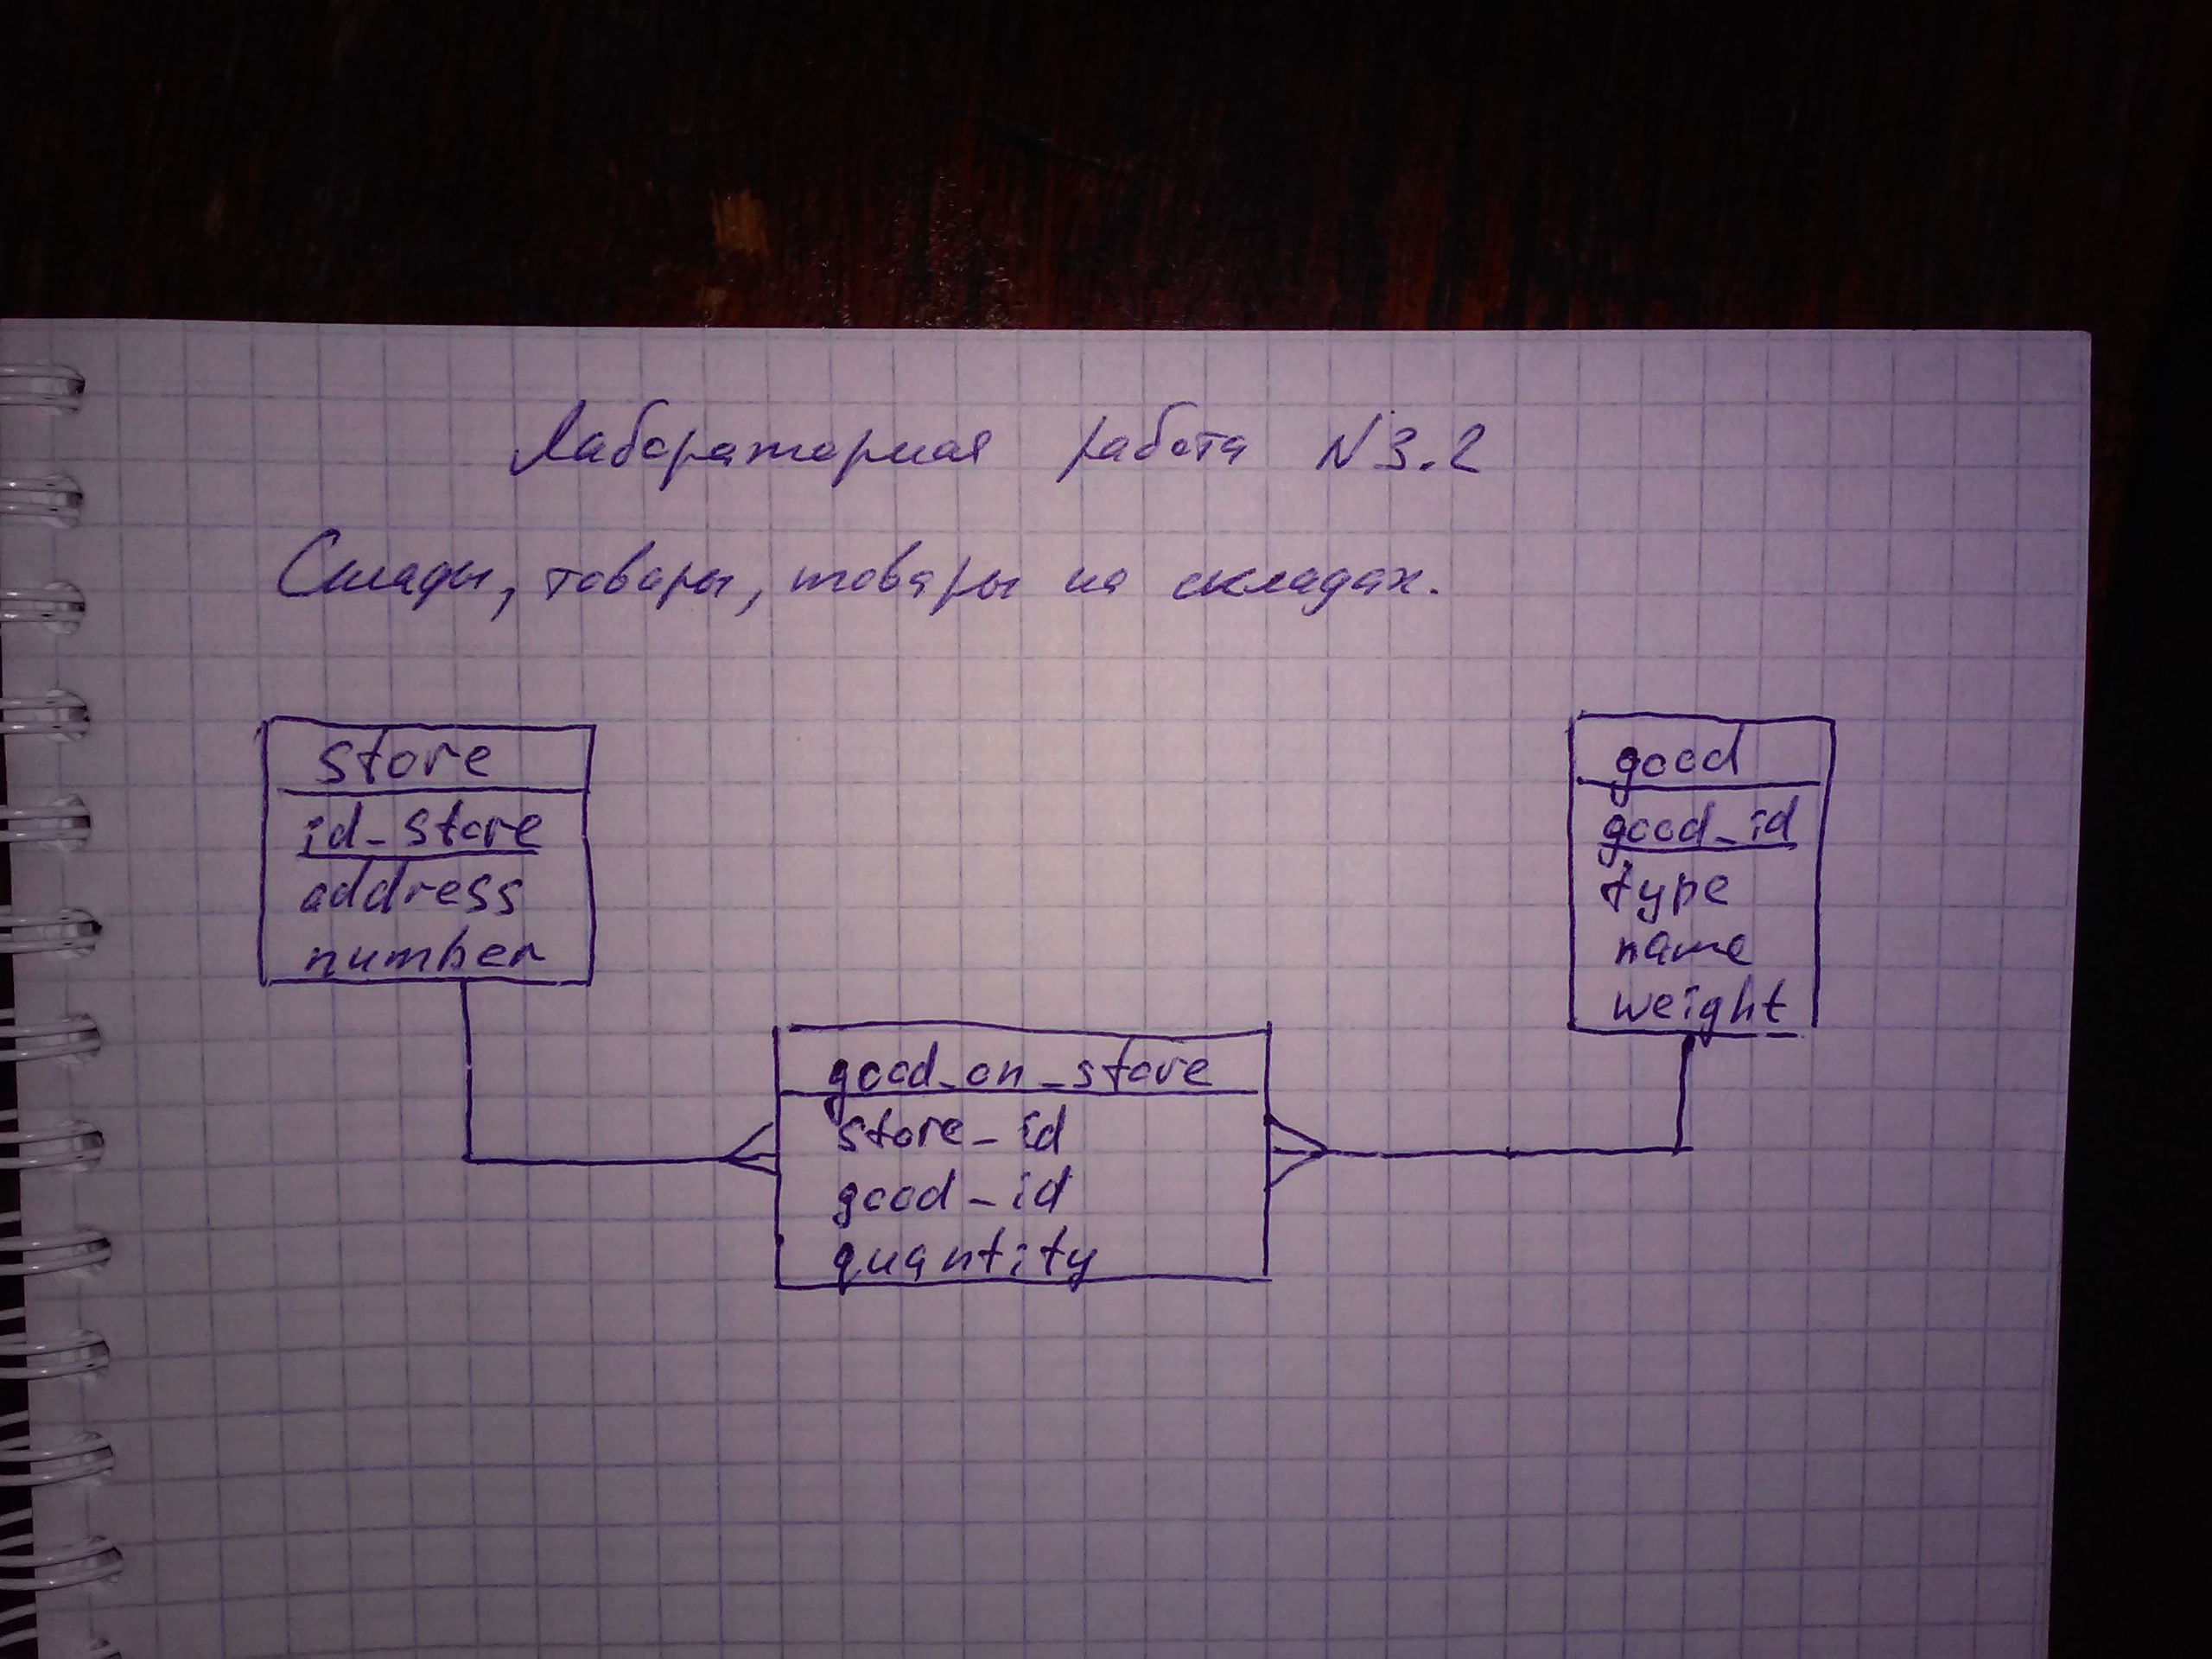 Лабораторная работа N3.2
Склады, товары, товары на складах.
Store
id_store
address
number
good_on_store
store_id
good_id
quantity
good
good_id
type
name
weight